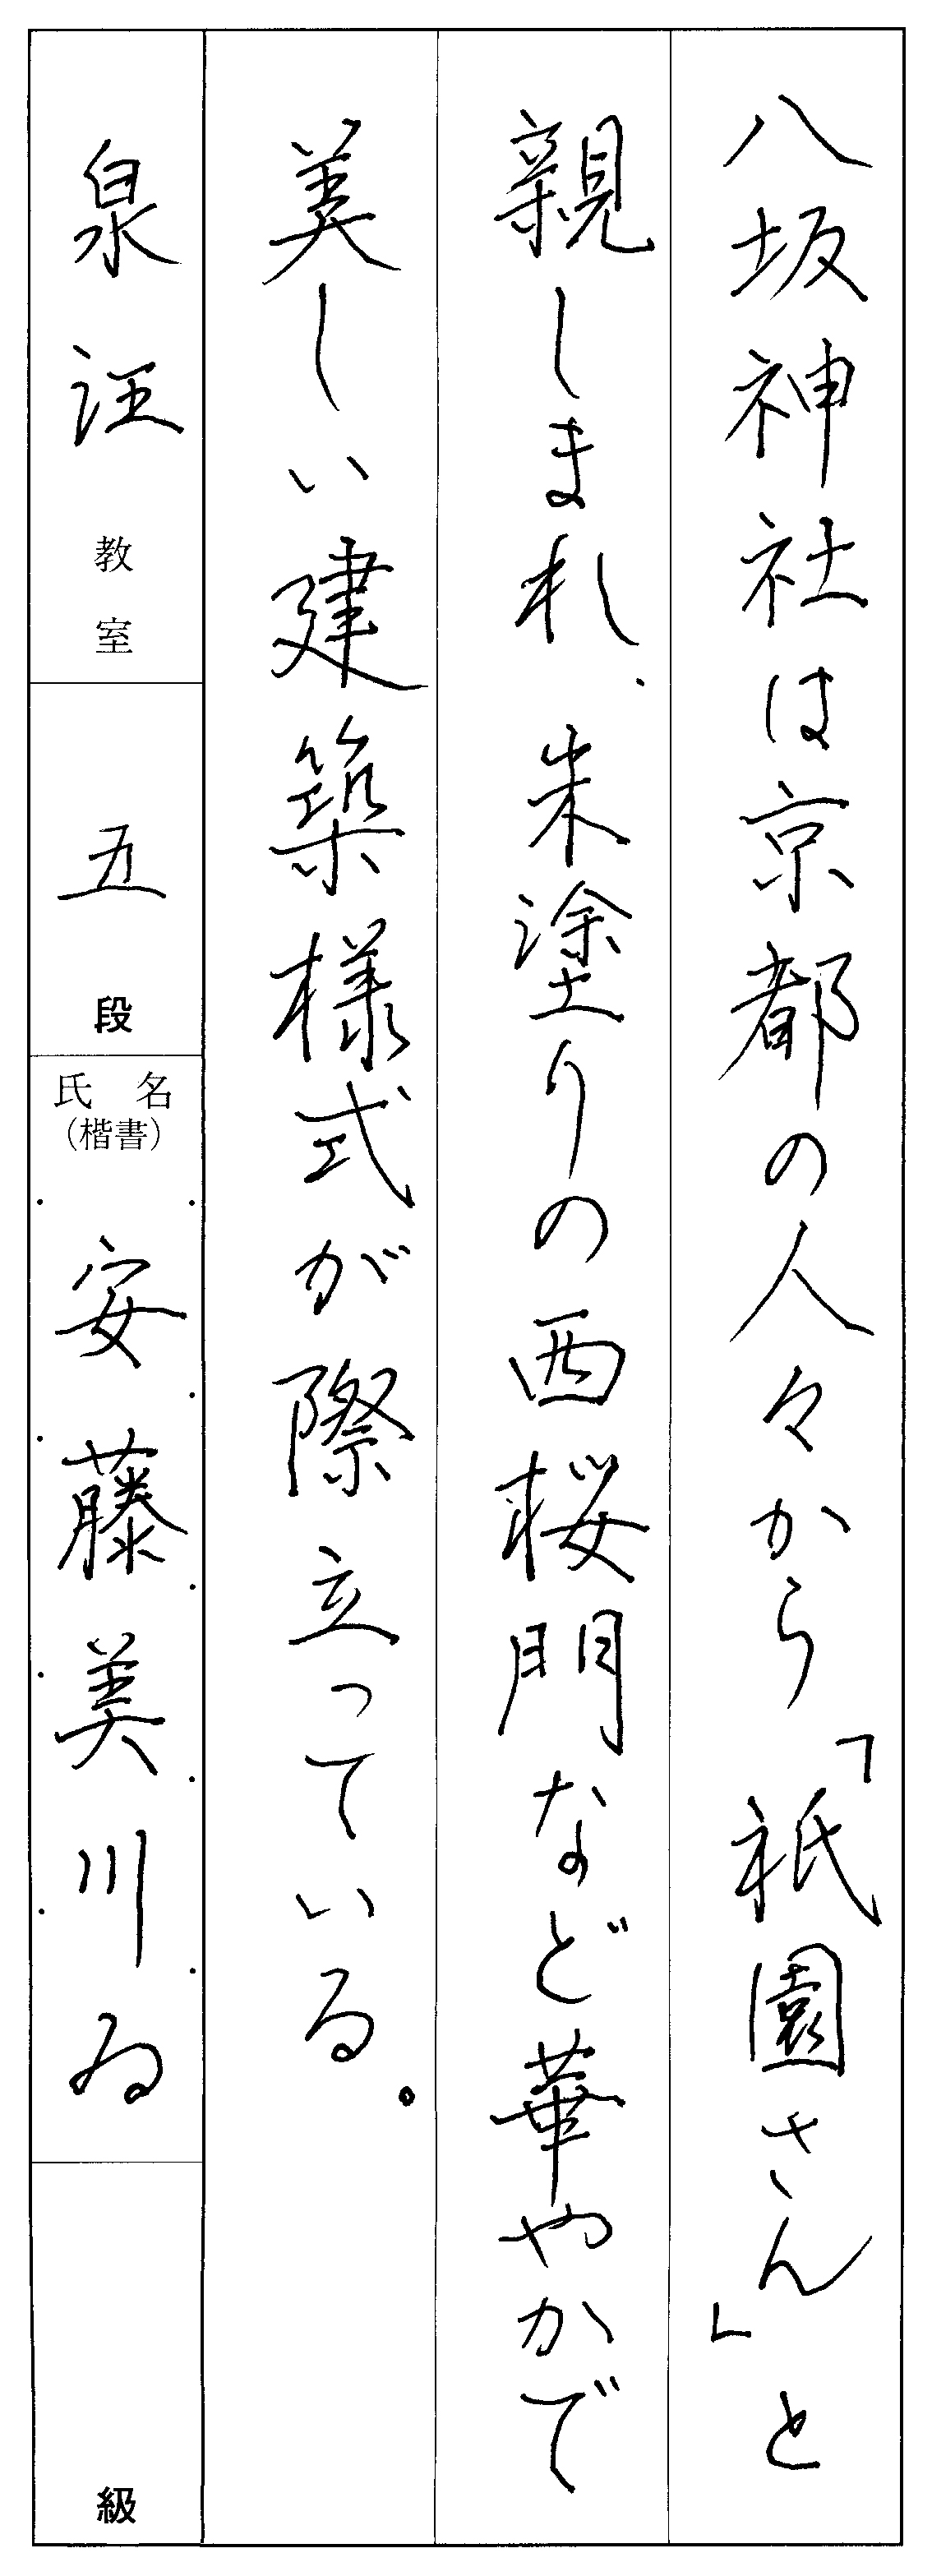 八坂神社は京都の人々から「祇園さん」と
親しまれ、朱塗りの西桜門など華やかで
美しい建築様式が際立っている。
泉汪教室
五段
氏名
(楷書)
安藤美川ゐ
級